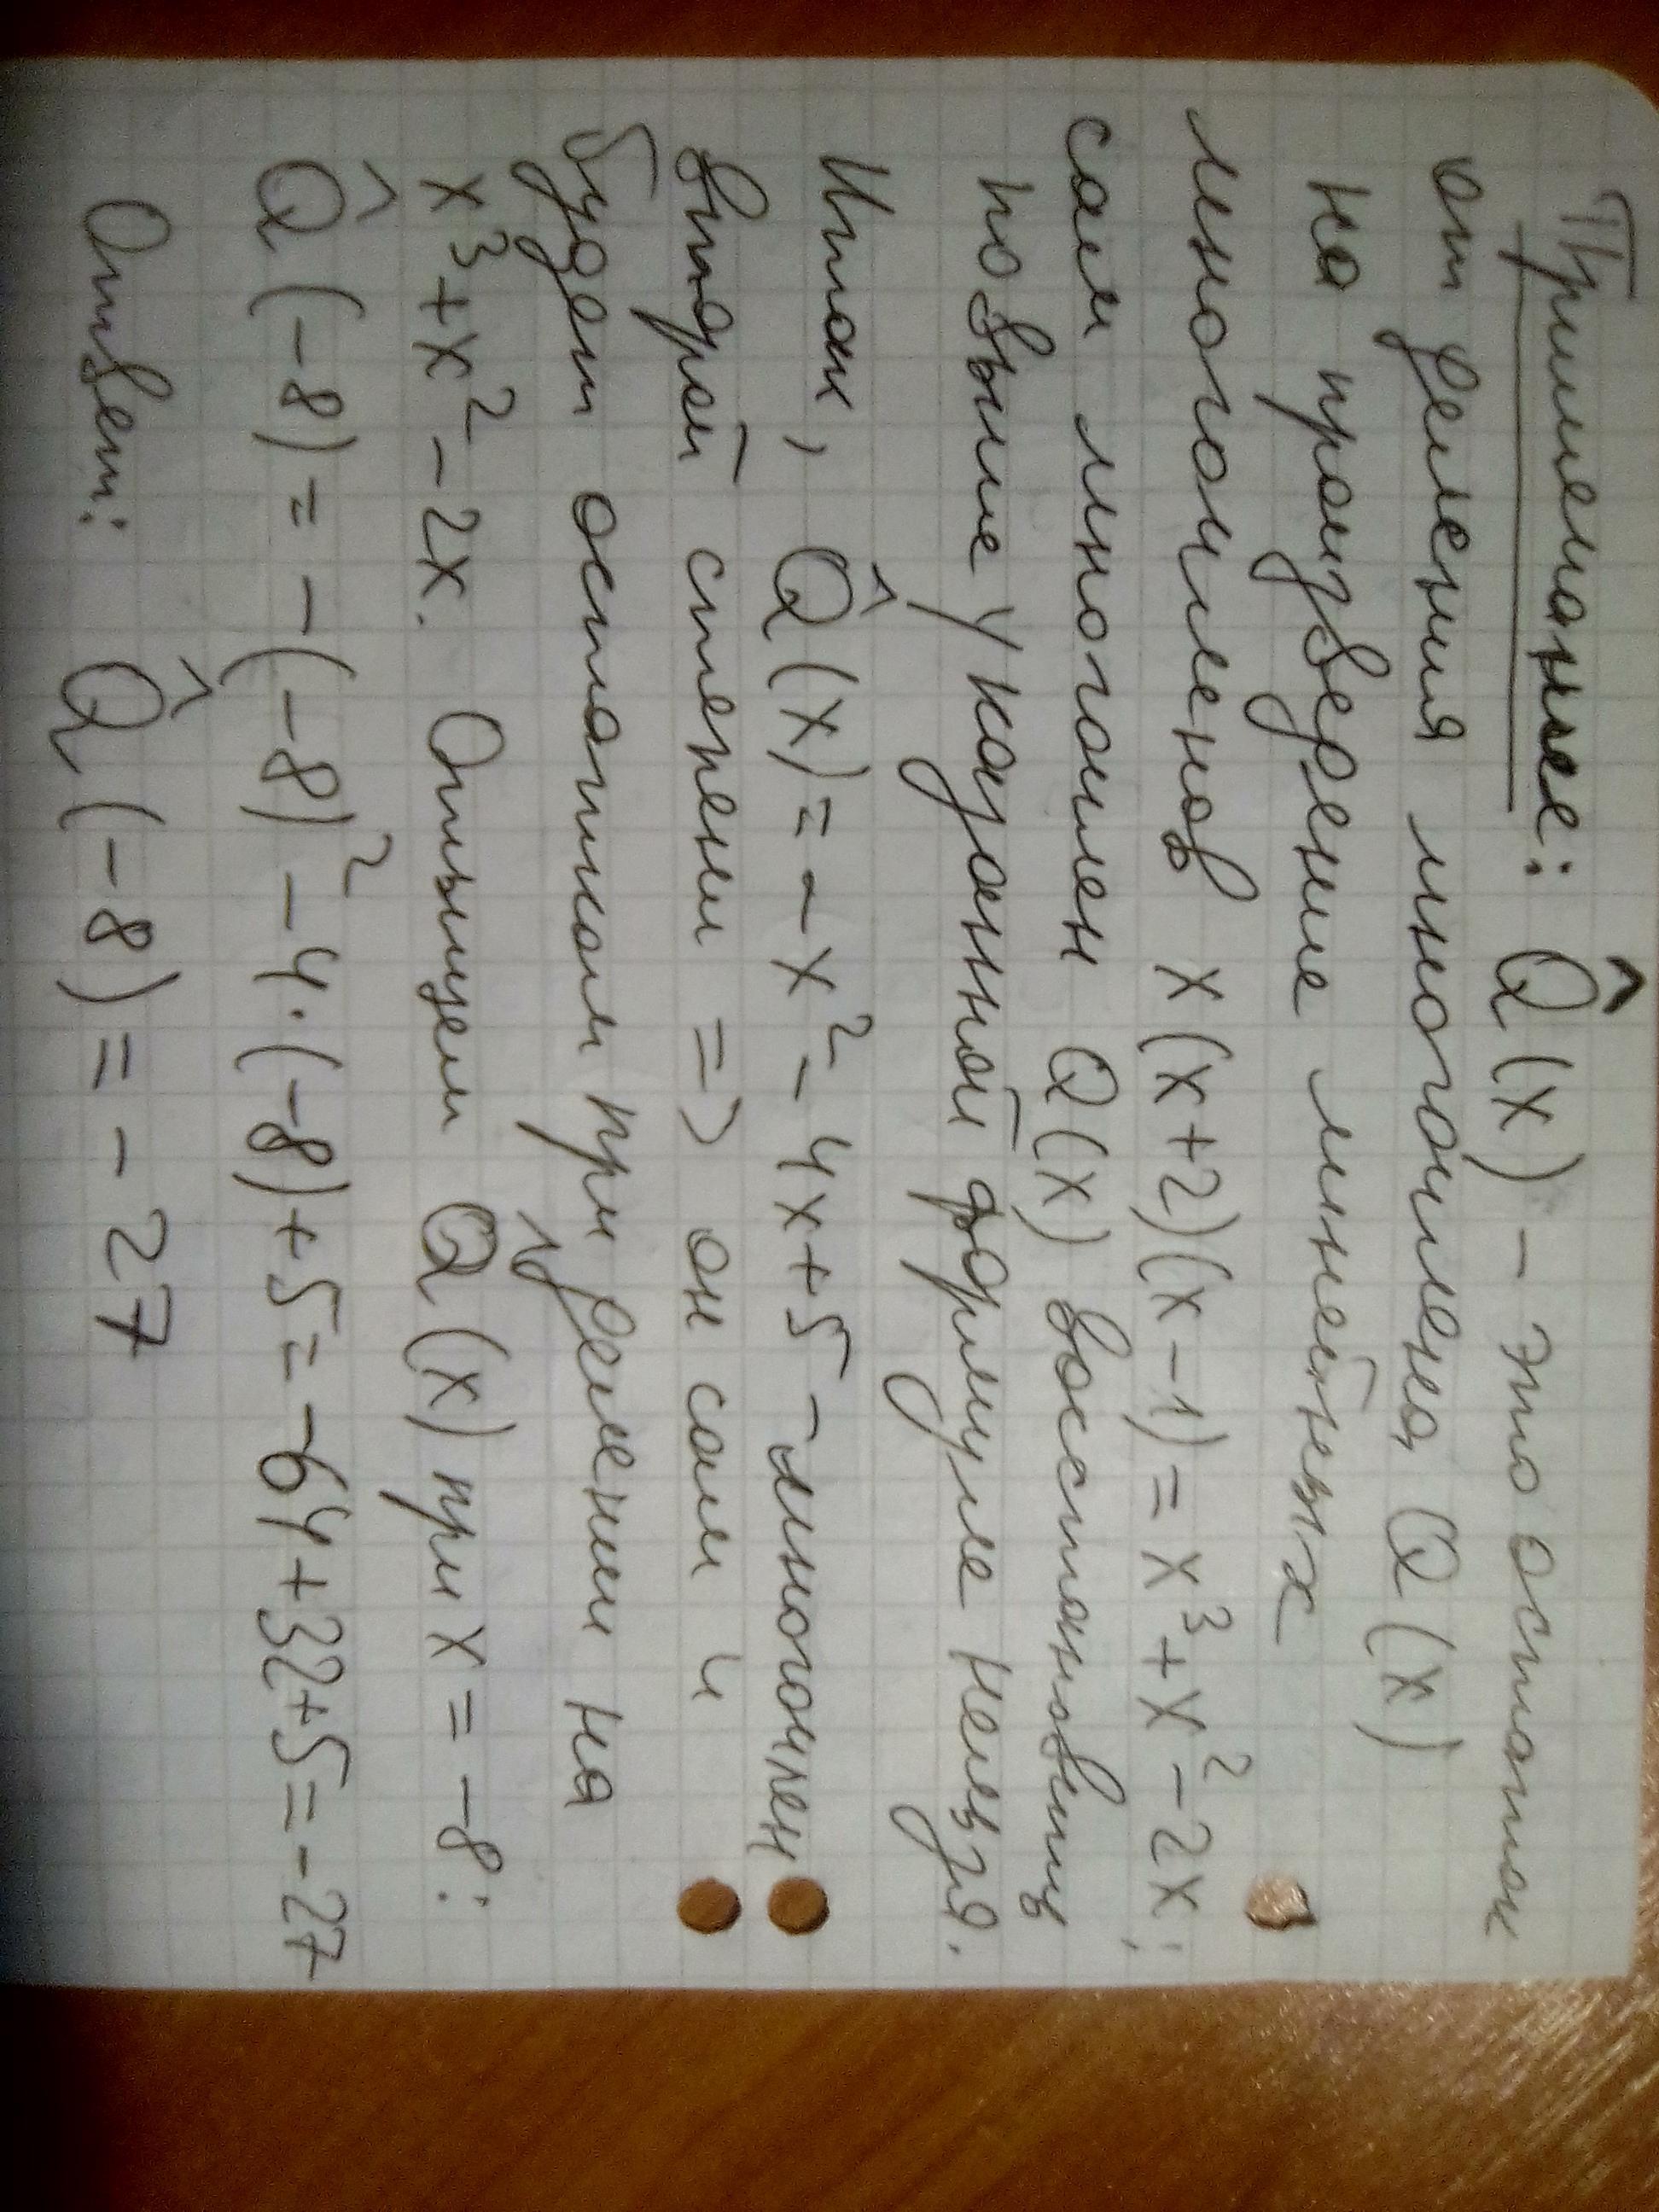 Примечание: Q̂(x) - это остаток
от деления многочлена Q(x)
на произведение линейных
многочленов x(x+2)(x-1) = x³+x²-2x;
сам многочлен Q(x) восстановить
по выше указанной формуле нельзя.
Итак, Q̂(x) = -x²-4x+5 - многочлен
второй степени => он сам и
будет остатком при делении на
x³+x²-2x. Отыщем Q̂(x) при x = -8:
Q̂(-8) = -(-8)²-4·(-8)+5 = -64+32+5 = -27
Ответ: Q̂(-8) = -27